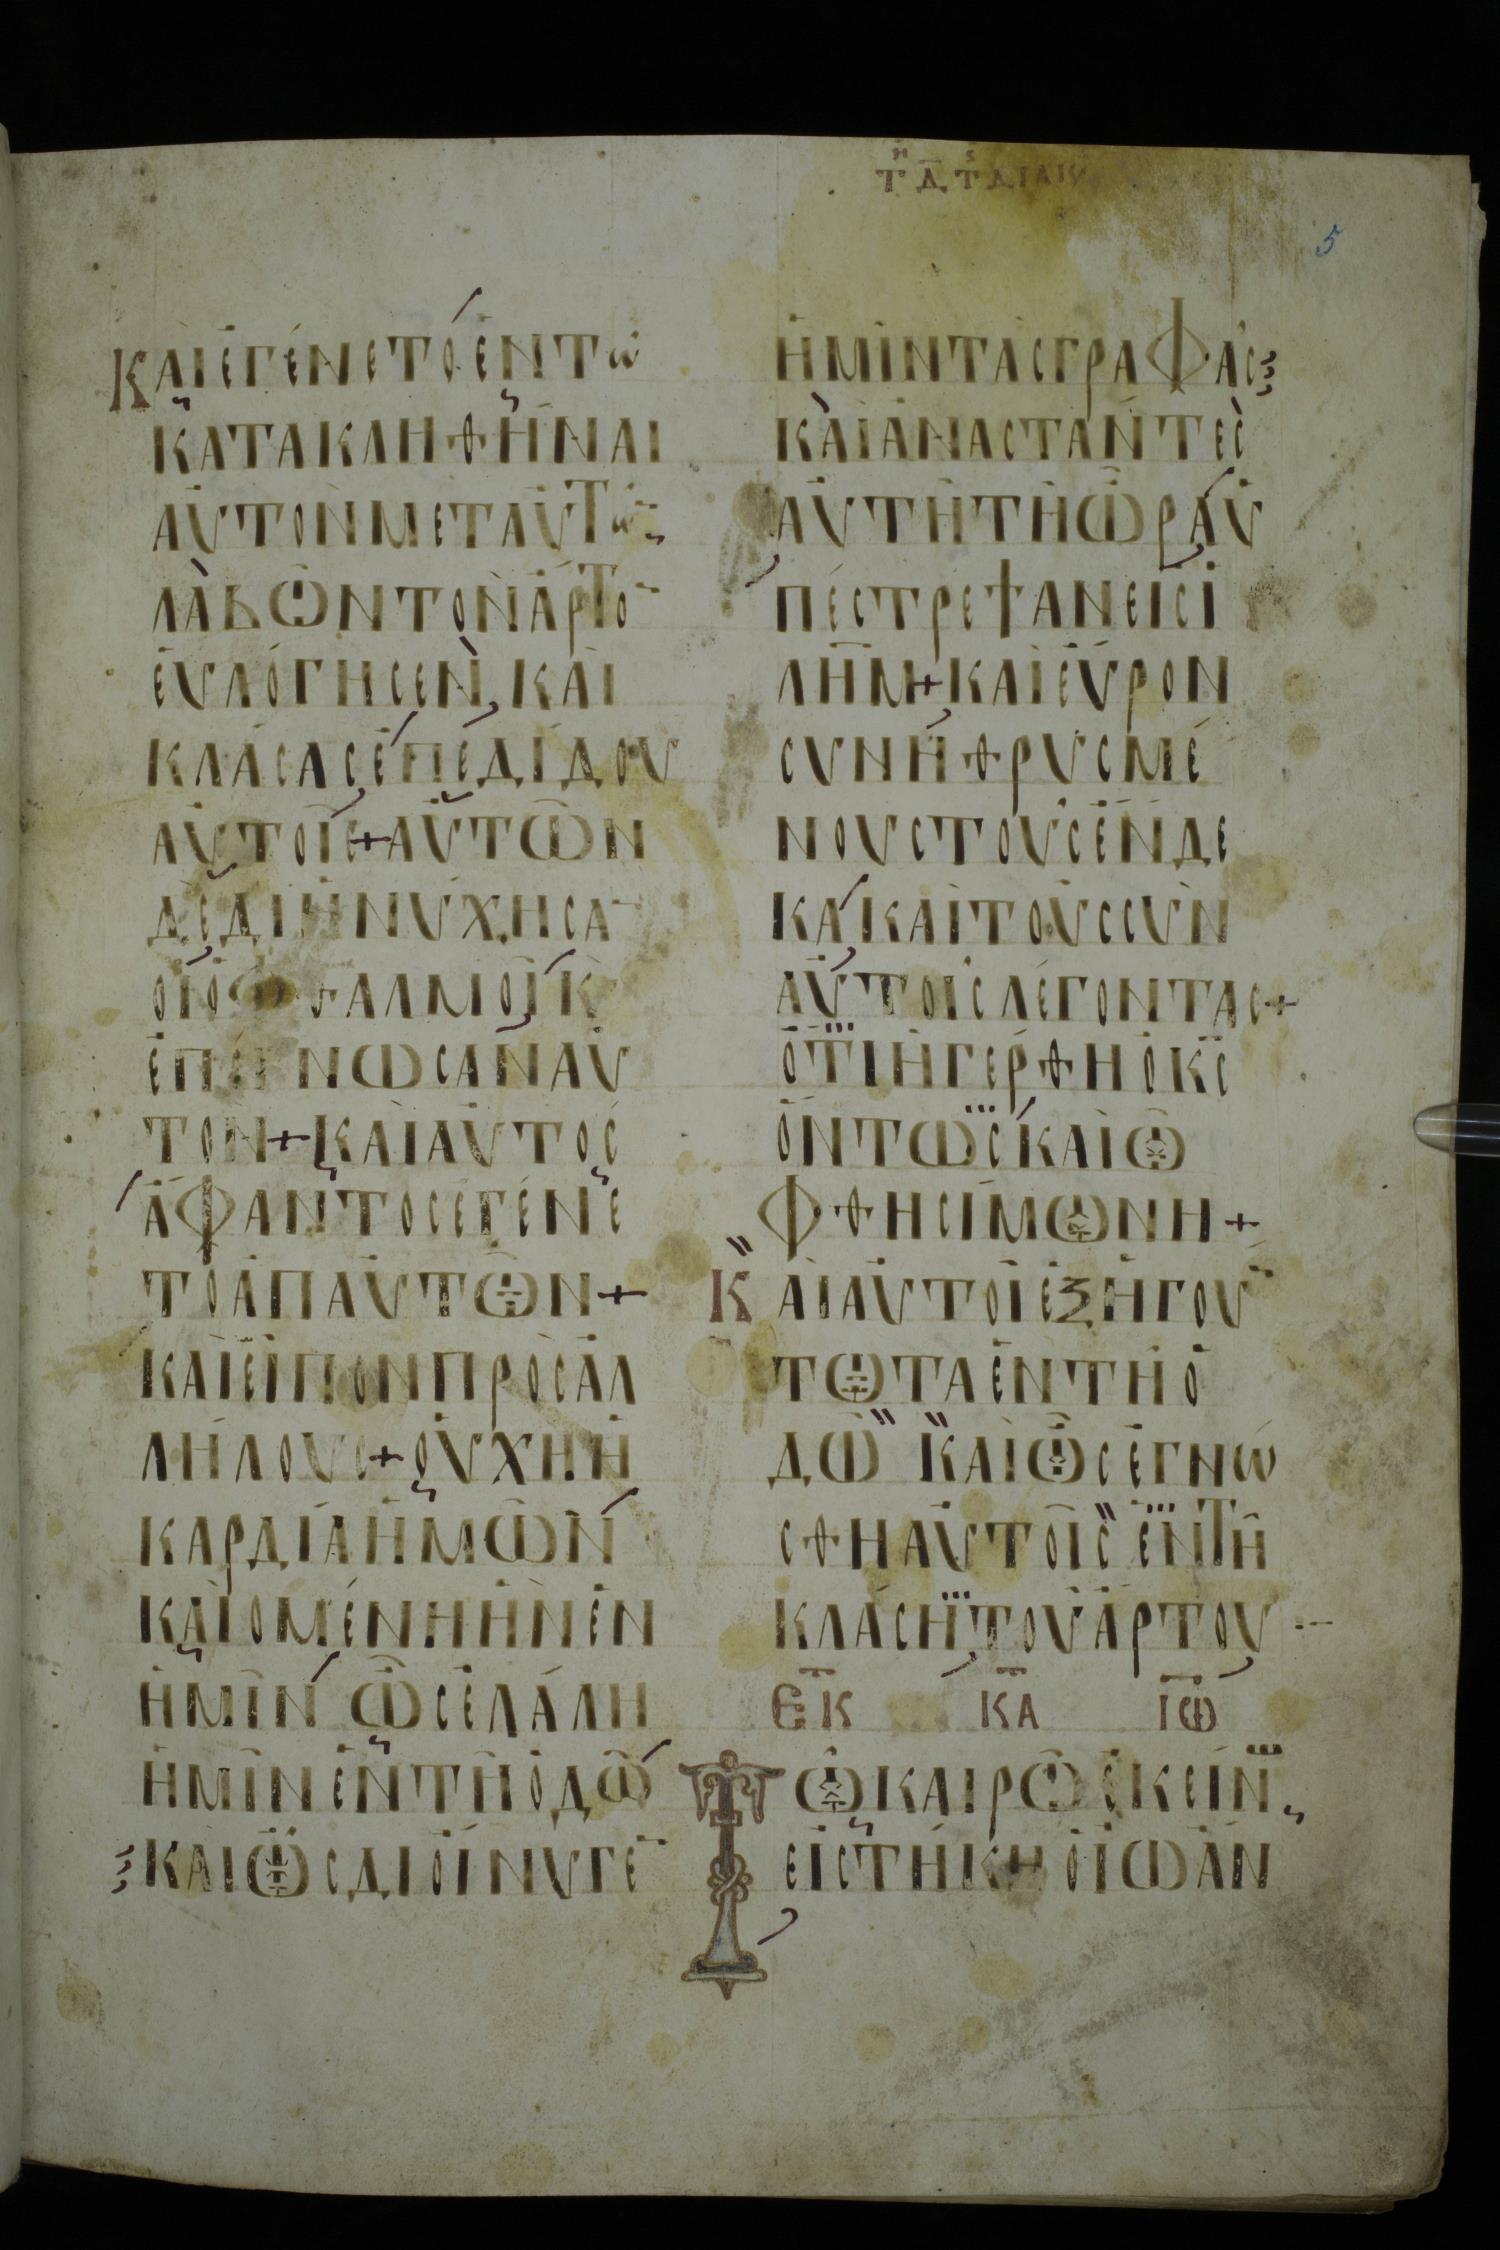 Τῌ Δ Τς ΔΙΑΙΝ
5
ΚΑΙΕΓΕΝΕΤΟΕΝΤω
ΚΑΤΑΚΛΗΘΗΝΑΙ
ΑΥΤΟΝΜΕΤΑΥΤω̅
ΛΑΒΩΝΤΟΝΑΡΤΟ̅
ΕΥΛΟΓΗΣΕΝ, ΚΑΙ
ΚΛΑΣΑΣΕΠΕΔΙΔΟΥ
ΑΥΤΟΙΣ+ΑΥΤΩΝ
ΔΕΔΙΗΝΥΧΗΣΑ̅
ΟΙΟΦΘΑΛΜΟΙΚ
ΕΠΕΓΝΩΣΑΝΑΥ
ΤΟΝ+ΚΑΙΑΥΤΟΣ
ΑΦΑΝΤΟΣΕΓΕΝΕ
ΤΟΑΠΑΥΤΩΝ+
ΚΑΙΕΙΠΟΝΠΡΟΣΑΛ
ΛΗΛΟΥΣ+ΟΥΧΗΗ
ΚΑΡΔΙΑΗΜΩΝ
ΚΑΙΟΜΕΝΗΗΝΕΝ
ΗΜΙΝ ΩΣΕΛΑΛΗ
ΗΜΙΝΕΝΤΗΟΔΩ
ΚΑΙΩΣΔΙΟΙΝΥΓΕ̅
ΗΜΙΝΤΑΣΓΡΑΦΑΣ
ΚΑΙΑΝΑΣΤΑΝΤΕΣ
ΑΥΤΗΤΗΩΡΑΥ
ΠΕΣΤΡΕΨΑΝΕΙΣΙ
ΛΗ̅Μ+ΚΑΙΕΥΡΟΝ
ΣΥΝΗΘΡΥΣΜΕ
ΝΟΥΣΤΟΥΣΕΝΔΕ
ΚΑ ΚΑΙΤΟΥΣΣΥΝ
ΑΥΤΟΙΣΛΕΓΟΝΤΑΣ+
ΟΤΙΗΓΕΡΘΗΟΚ̅Σ
ΟΝΤΩΣΚΑΙΩ
ΦΘΗΣΙΜΩΝΗ+
ΚΑΙΑΥΤΟΙΕΞΗΓΟΥ̅
ΤΩΤΑΕΝΤΗΟ
ΔΩ ΚΑΙΩΣΕΓΝΩ
ΣΘΗΑΥΤΟΙΣ ΕΝΤΗ
ΚΛΑΣΗΤΟΥΑΡΤΟΥ
ΕΚ ΚΑ ΙΩ
ΤΩΚΑΙΡΩΕΚΕΙΝ
ΕΙΣΤΗΚΗΟΙΩΑΝ